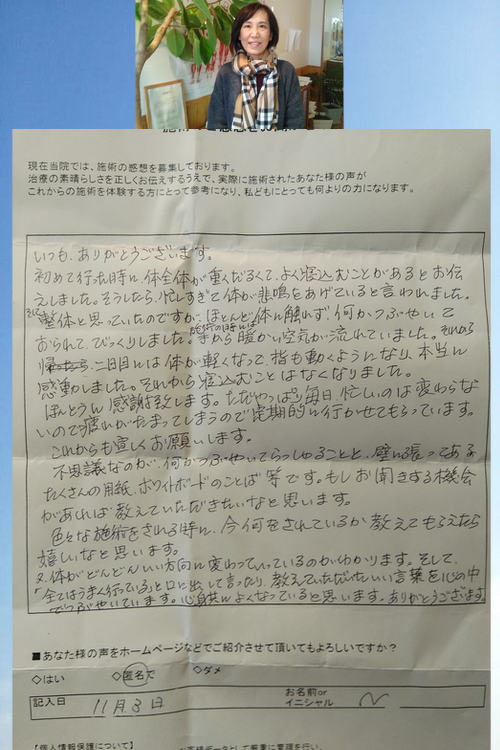 現在当院では、施術の感想を募集しております。
治療の素晴らしさを正しくお伝えするうえで、実際に施術されたあなた様の声が
これからの施術を体験する方にとって参考になり、私どもにとっても何よりの力になります。
いつも、ありがとうございます。
初めて行った時に、体全体が重くだるくて、よく寝込むことがあるとお伝
えしました。そうしたら、忙しすぎて体が悲鳴をあげていると言われました。
そして
整体と思っていたのですが、ほとんど体に触れず何かつぶやいて
おられて、びっくりしました。施術の時には手から暖かい空気が流れていました。それから
二日目には体が軽くなって指も動くようになり、本当に
感動しました。それから寝込むことはなくなりました。
ほんとうに感謝致します。ただやっぱり毎日、忙しいのは変わらな
いので疲れがたまってしまうので定期的に行かせてもらっています。
これからも宜しくお願いします。
不思議なのが、何かつぶやいてらっしゃることと、壁に張ってある
たくさんの用紙、ホワイトボードのことば等です。もしお聞きする機会
があれば教えていただきたいなと思います。
色々な施術をされる時に、今何をされているか教えてもらえたら
嬉しいなと思います。
又、体がどんどんいい方向に変わっていっているのがわかります。そして、
「全てはうまく行っている」と口に出して言ったり、教えていただいたいい言葉を心の中
でつぶやいています。心身共によくなっていると思います。ありがとうございます
■あなた様の声をホームページなどでご紹介させて頂いてもよろしいですか？
◇はい ◇匿名で ◇ダメ
記入日 11月3日 お名前or
イニシャル N
【個人情報保護について】